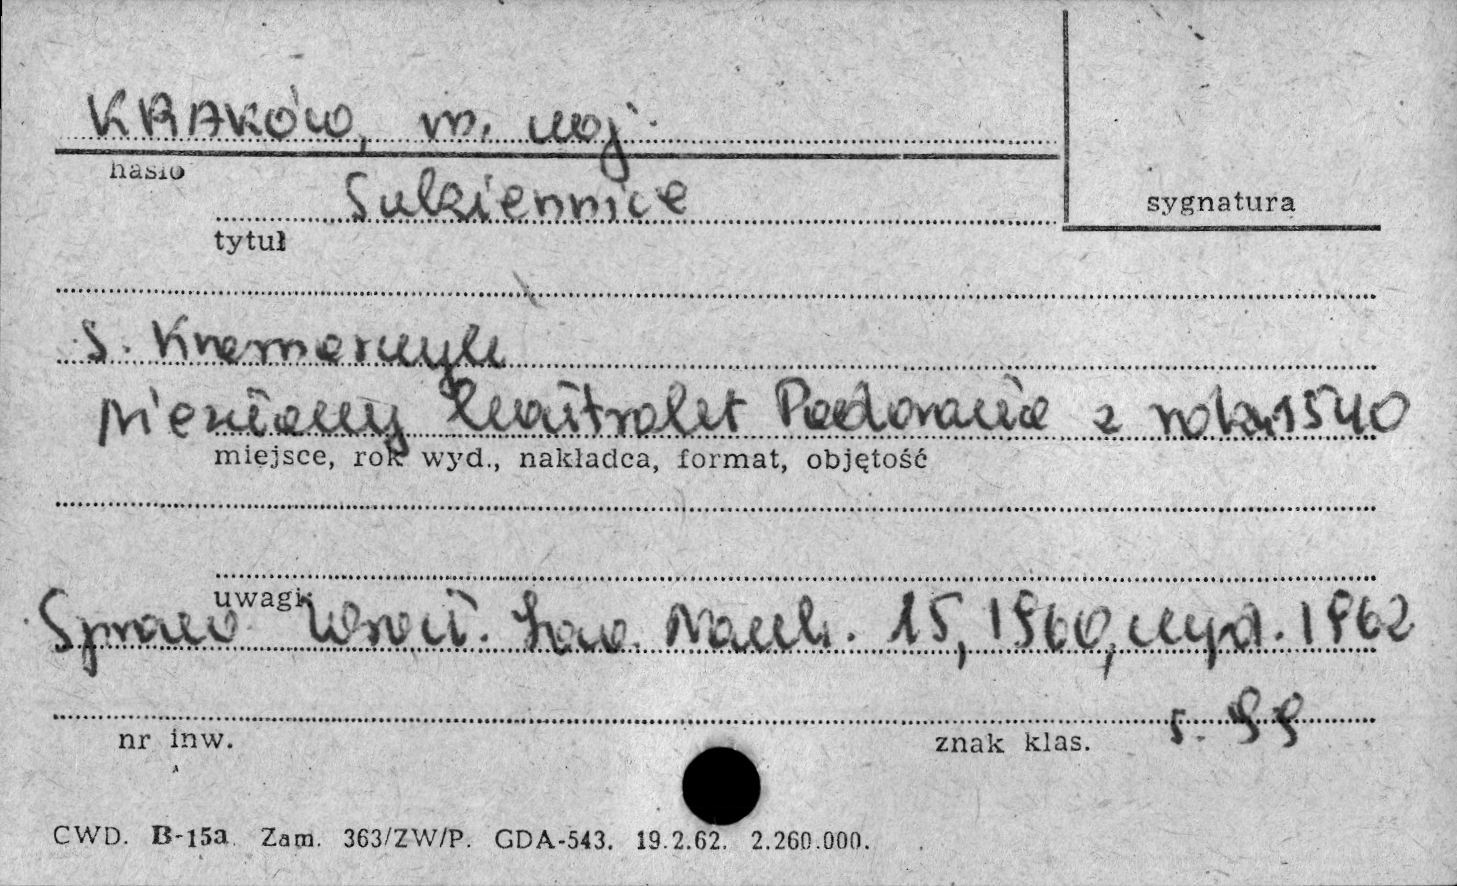 KRAKÓW, m. woj.
hasło
Sukiennice
sygnatura
tytuł
S. Kramarczyk
Nieznany kwartalet Padovana z roku 1540
miejsce, rok wyd., nakładca, format, objętość
uwagi
Spraw. Wroc. Tow. Nauk. 15, 1960, wyd. 1962
s. 99
nr inw.
znak klas.
CWD. B-15a. Zam. 363/ZW/P. GDA-543. 19.2.62. 2.260.000.